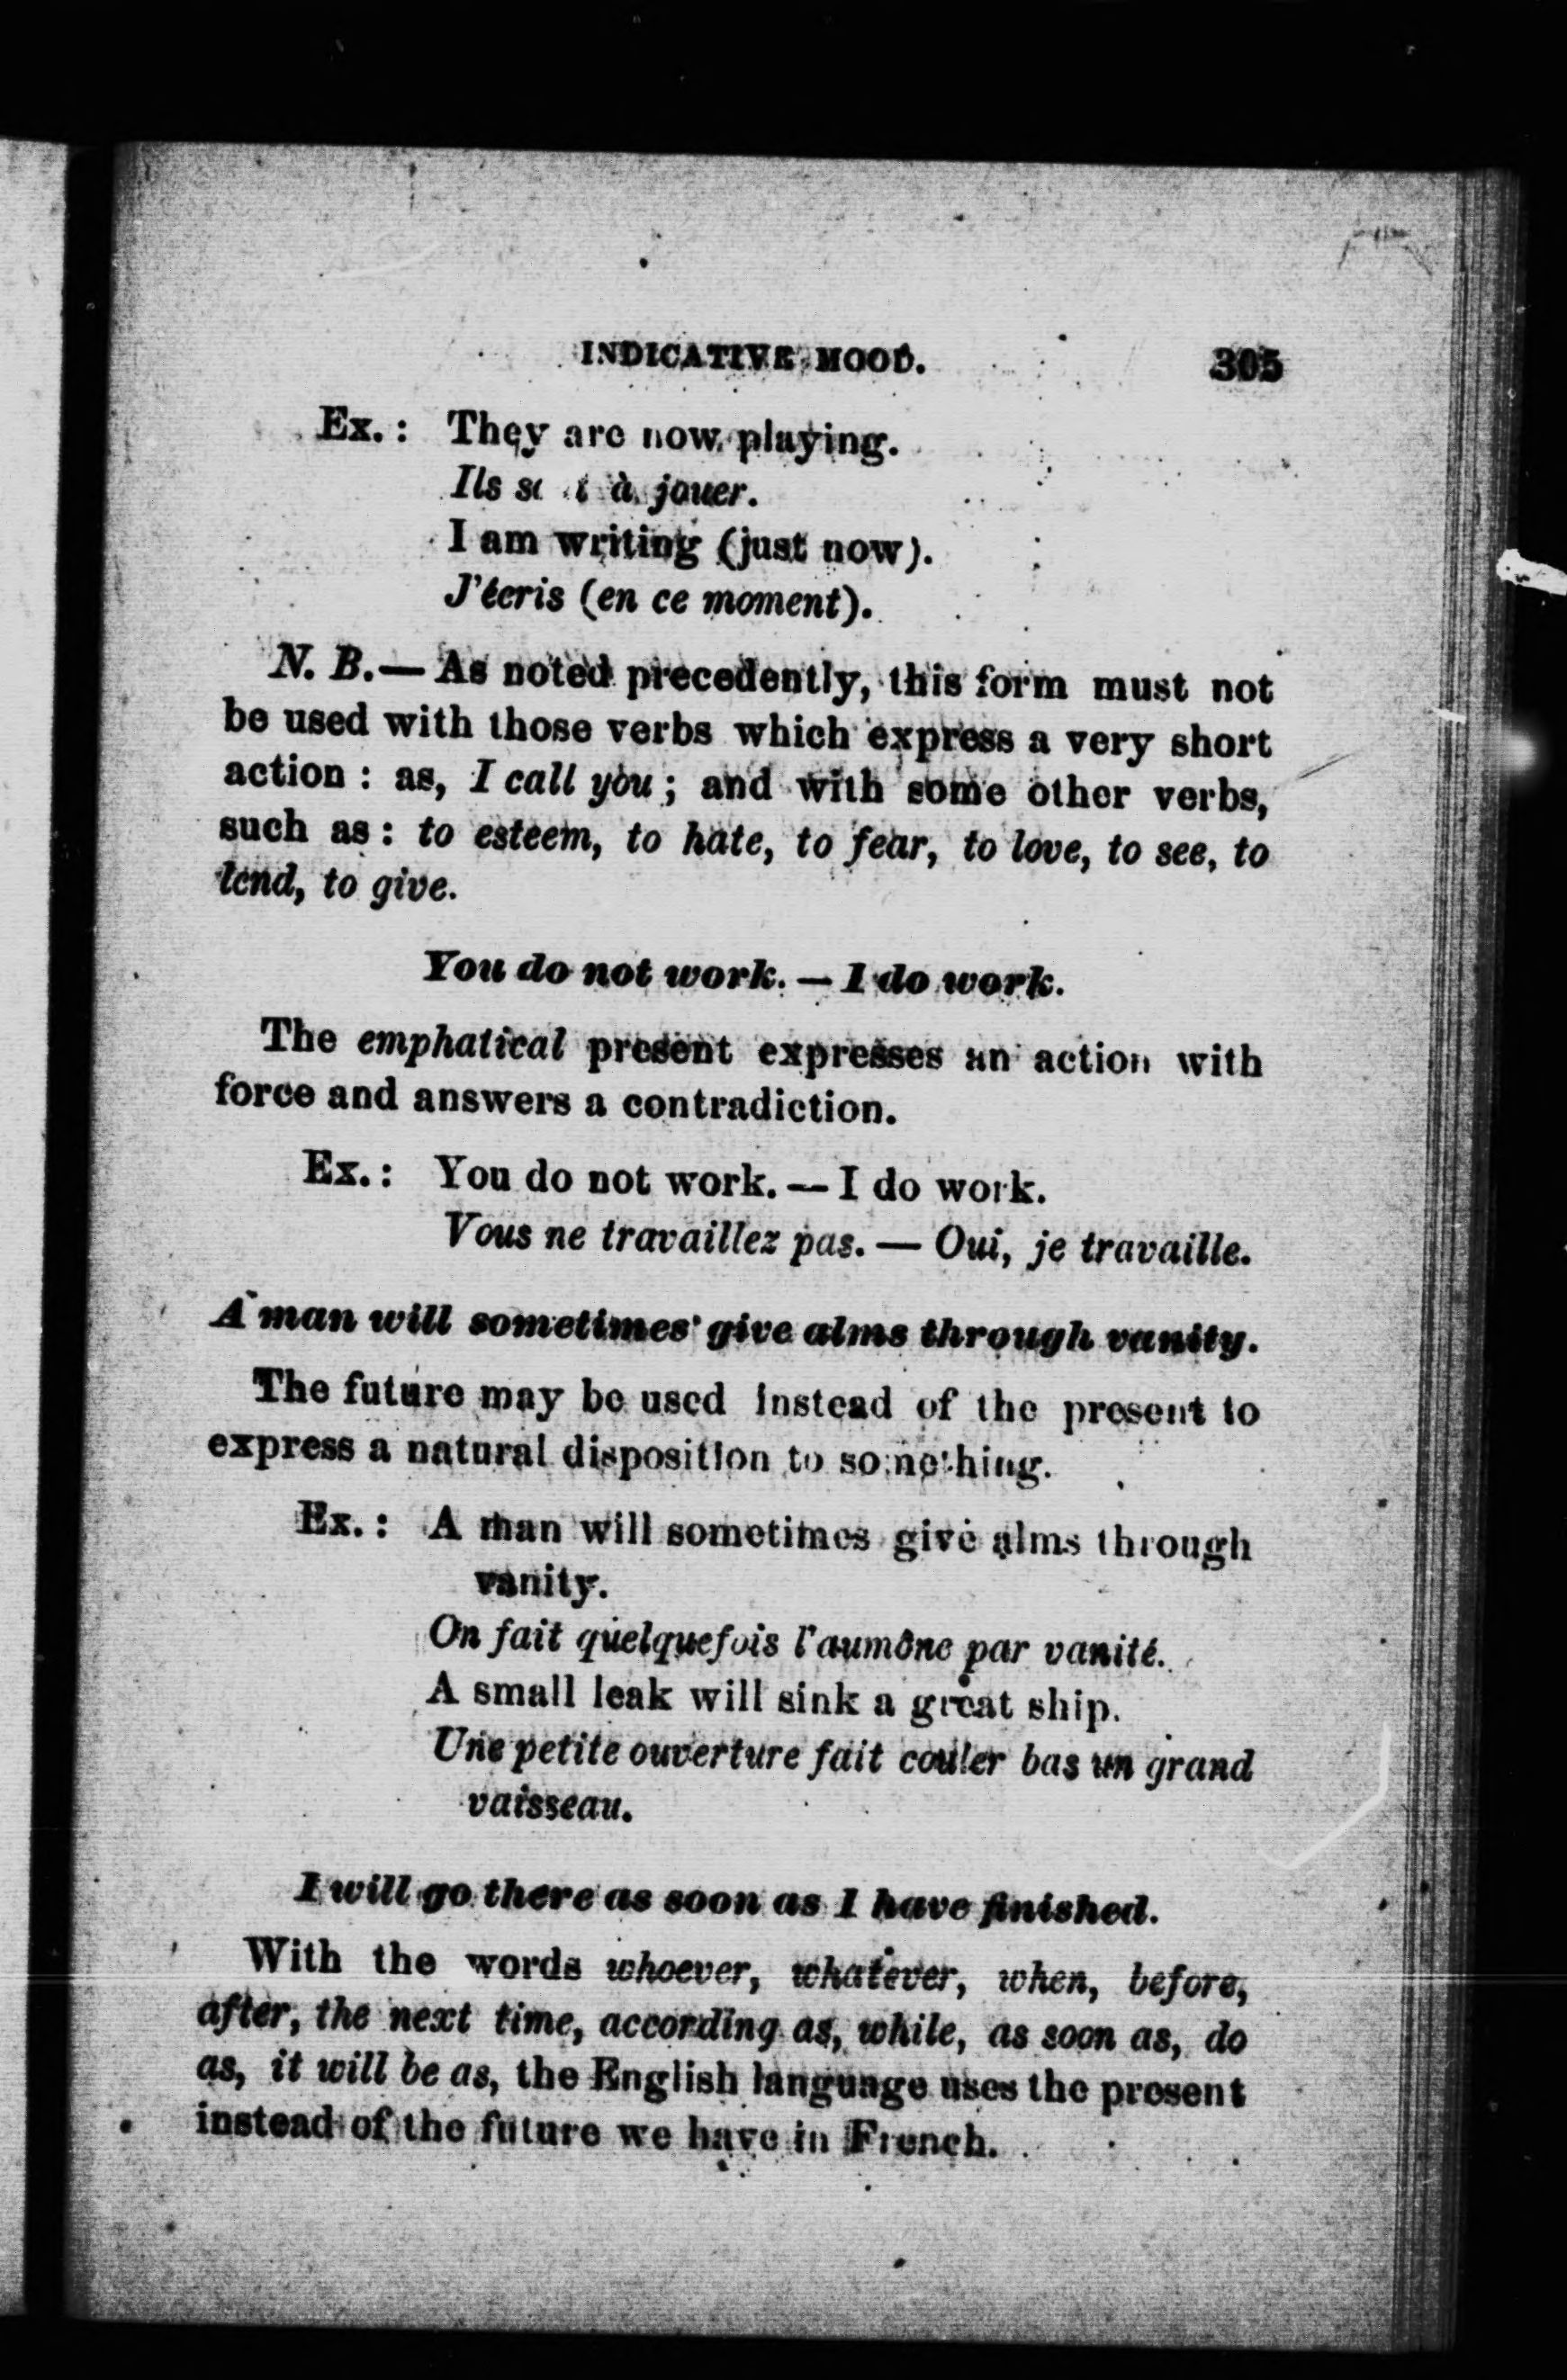 INDICATIVE MOOD. 305
Ex.: They are now playing.
Ils à jouer.
I am writing (just now).
J'écris (en ce moment).
N. B.— As noted precedently, this form must not
be used with those verbs which express a very short
action : as, I call you ; and with some other verbs,
such as : to esteem, to hate, to fear, to love, to see, to
lend, to give.
You do not work. — I do work.
The emphatical present expresses an action with
force and answers a contradiction.
Ex.: You do not work. — I do work.
Vous ne travaillez pas. — Oui, je travaille.
A man will sometimes give alms through vanity.
The future may be used instead of the present to
express a natural disposition to something.
Ex.: A man will sometimes give alms through
vanity.
On fait quelquefois l'aumône par vanité.
A small leak will sink a great ship.
Une petite ouverture fait couler bas un grand
vaisseau.
I will go there as soon as I have finished.
With the words whoever, whatever, when, before,
after, the next time, according as, while, as soon as, do
as, it will be as, the English language uses the present
instead of the future we have in French.